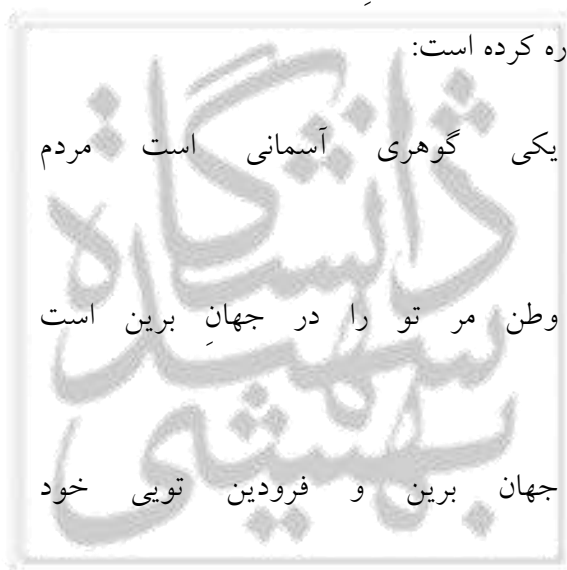 ره کرده است:
یکی گوهری آسمانی است مردم
وطن مر تو را در جهانِ برین است
جهان برین و فرودین تویی خود
دانشگاه شهید بهشتی